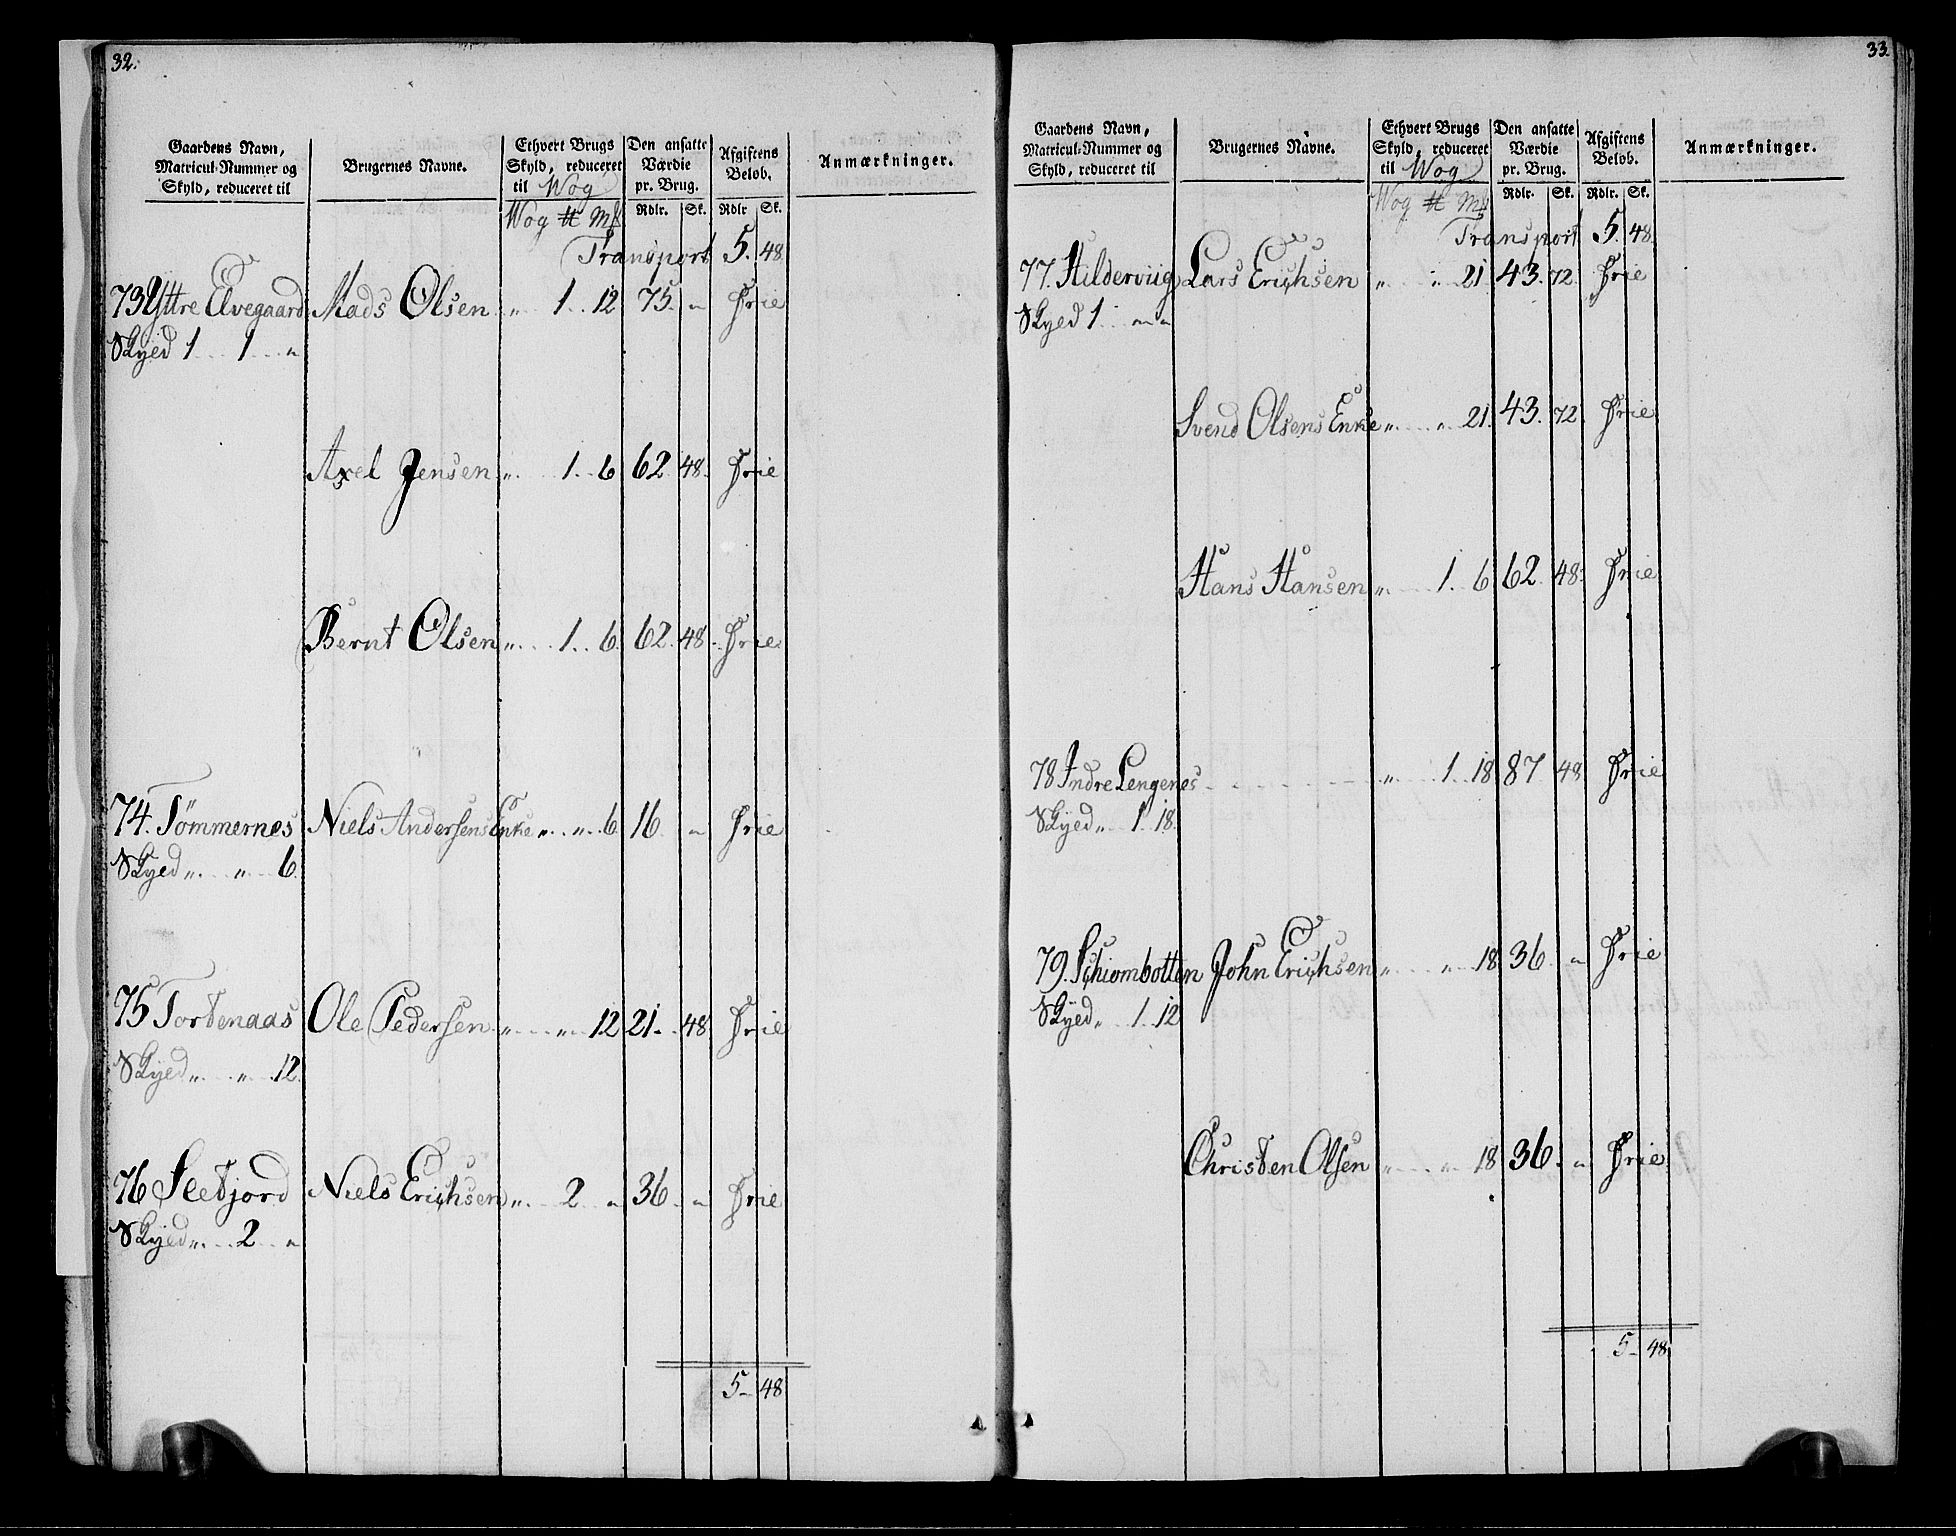 32.
Gaardens Navn, Matricul-Nummer og Skyld, reduceret til
Brugernes Navne.
Ethvert Brugs Skyld, reduceret til Wog
Den ansatte Værdie pr. Brug.
Afgiftens Beløb.
Anmærkninger.
Wog ℔ Mk Rdlr. Sk. Rdlr Sk.
Transport 5. 48.
73 Yttre Elvegaard Mads Olsen „ 1 .. 12 75. „ Frie
Skyed 1 .. 1 .. „
Axel Jensen „ 1 .. 6 62 48. Frie
Bernt Olsen „ 1 .. 6. 62. 48. Frie
74. Tömmernes Niels Andersens Enke „ .. „ .. 6 16 „ Frie
Skyed „ .. „ .. 6.
75 Tortenaas Ole Pedersen „ .. „ .. 12 21. 48. Frie
Skyed „ .. „ .. 12.
76 Sletjord Niels Erichsen „ .. 2 .. „ 36 .. „ Frie
Skyed „ .. 2 .. „
5 - 48
33.
Gaardens Navn, Matricul-Nummer og Skyld, reduceret til
Brugernes Navne.
Ethvert Brugs Skyld, reduceret til Wog
Den ansatte Værdie pr. Brug.
Afgiftens Beløb.
Anmærkninger.
Wog ℔ Mk Rdlr. Sk. Rdlr. Sk.
Transport 5. 48.
77. Hilderviig Lars Erichsen „ „ 21 43. 72. Frie
Skyed 1 .. „ „
Svend Olsens Enke „ .. „ 21. 43. 72. Frie
Hans Hansen „ .. 1 .. 6 62. 48. Frie
78 Indre Lengenes „ .. 1 .. 18 87 48 Frie
Skyed „ .. 1 .. 18.
79. Schiombotten John Erichsen „ .. „ .. 18 36. „ Frie
Skyed „ .. 1 .. 12
Christen Olsen „ .. „ .. 18 36. „ Frie
5 - 48.